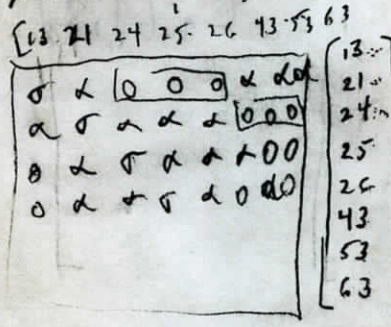 [13 21 24 25 26 43 53 63
σ α 0 0 0 α α α
α σ α α α 0 0 0
0 α σ α α α 0 0
0 α α σ α 0 α 0
13
21
24
25
26
43
53
63